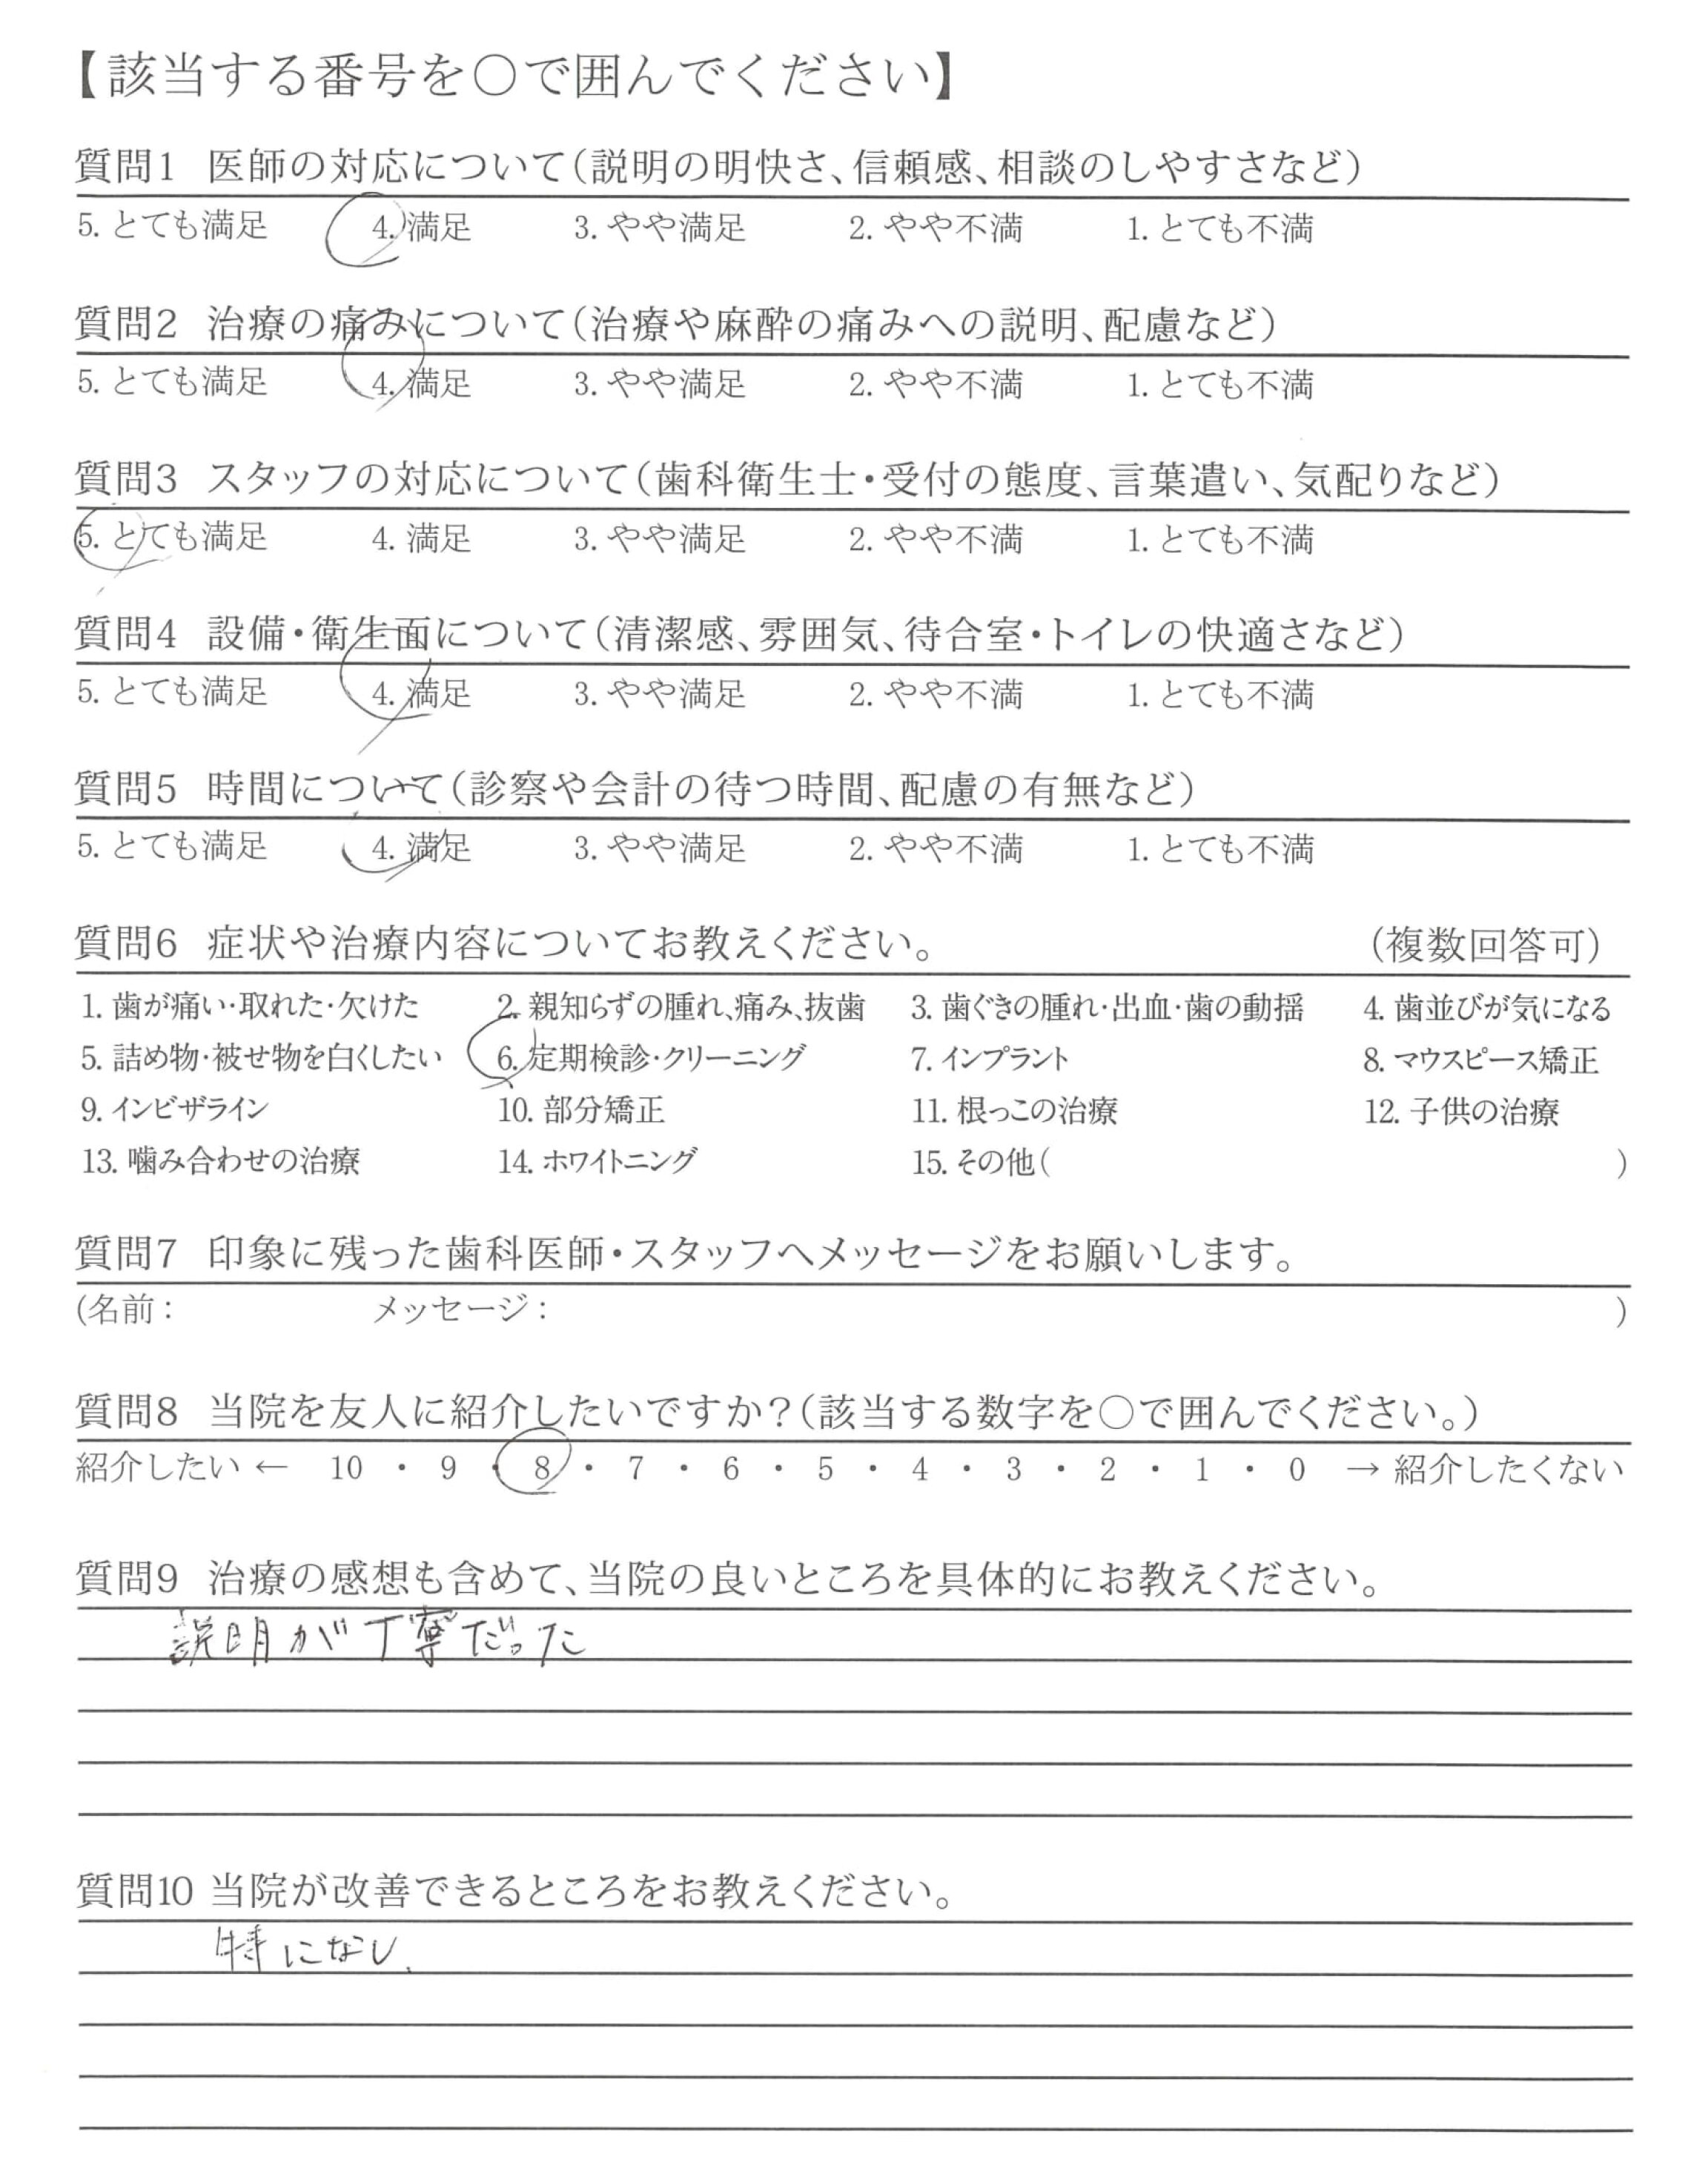 【該当する番号を○で囲んでください】
質問1 医師の対応について（説明の明快さ、信頼感、相談のしやすさなど）
5. とても満足 4. 満足 3. やや満足 2. やや不満 1. とても不満
質問2 治療の痛みについて（治療や麻酔の痛みへの説明、配慮など）
5. とても満足 4. 満足 3. やや満足 2. やや不満 1. とても不満
質問3 スタッフの対応について（歯科衛生士・受付の態度、言葉遣い、気配りなど）
5. とても満足 4. 満足 3. やや満足 2. やや不満 1. とても不満
質問4 設備・衛生面について（清潔感、雰囲気、待合室・トイレの快適さなど）
5. とても満足 4. 満足 3. やや満足 2. やや不満 1. とても不満
質問5 時間について（診察や会計の待つ時間、配慮の有無など）
5. とても満足 4. 満足 3. やや満足 2. やや不満 1. とても不満
質問6 症状や治療内容についてお教えください。 （複数回答可）
1. 歯が痛い・取れた・欠けた 2. 親知らずの腫れ、痛み、抜歯 3. 歯ぐきの腫れ・出血・歯の動揺 4. 歯並びが気になる
5. 詰め物・被せ物を白くしたい 6. 定期検診・クリーニング 7. インプラント 8. マウスピース矯正
9. インビザライン 10. 部分矯正 11. 根っこの治療 12. 子供の治療
13. 噛み合わせの治療 14. ホワイトニング 15. その他（ ）
質問7 印象に残った歯科医師・スタッフへメッセージをお願いします。
(名前： メッセージ： )
質問8 当院を友人に紹介したいですか？（該当する数字を○で囲んでください。）
紹介したい ← 10 ・ 9 ・ 8 ・ 7 ・ 6 ・ 5 ・ 4 ・ 3 ・ 2 ・ 1 ・ 0 → 紹介したくない
質問9 治療の感想も含めて、当院の良いところを具体的にお教えください。
説明が丁寧だった
質問10 当院が改善できるところをお教えください。
特になし.